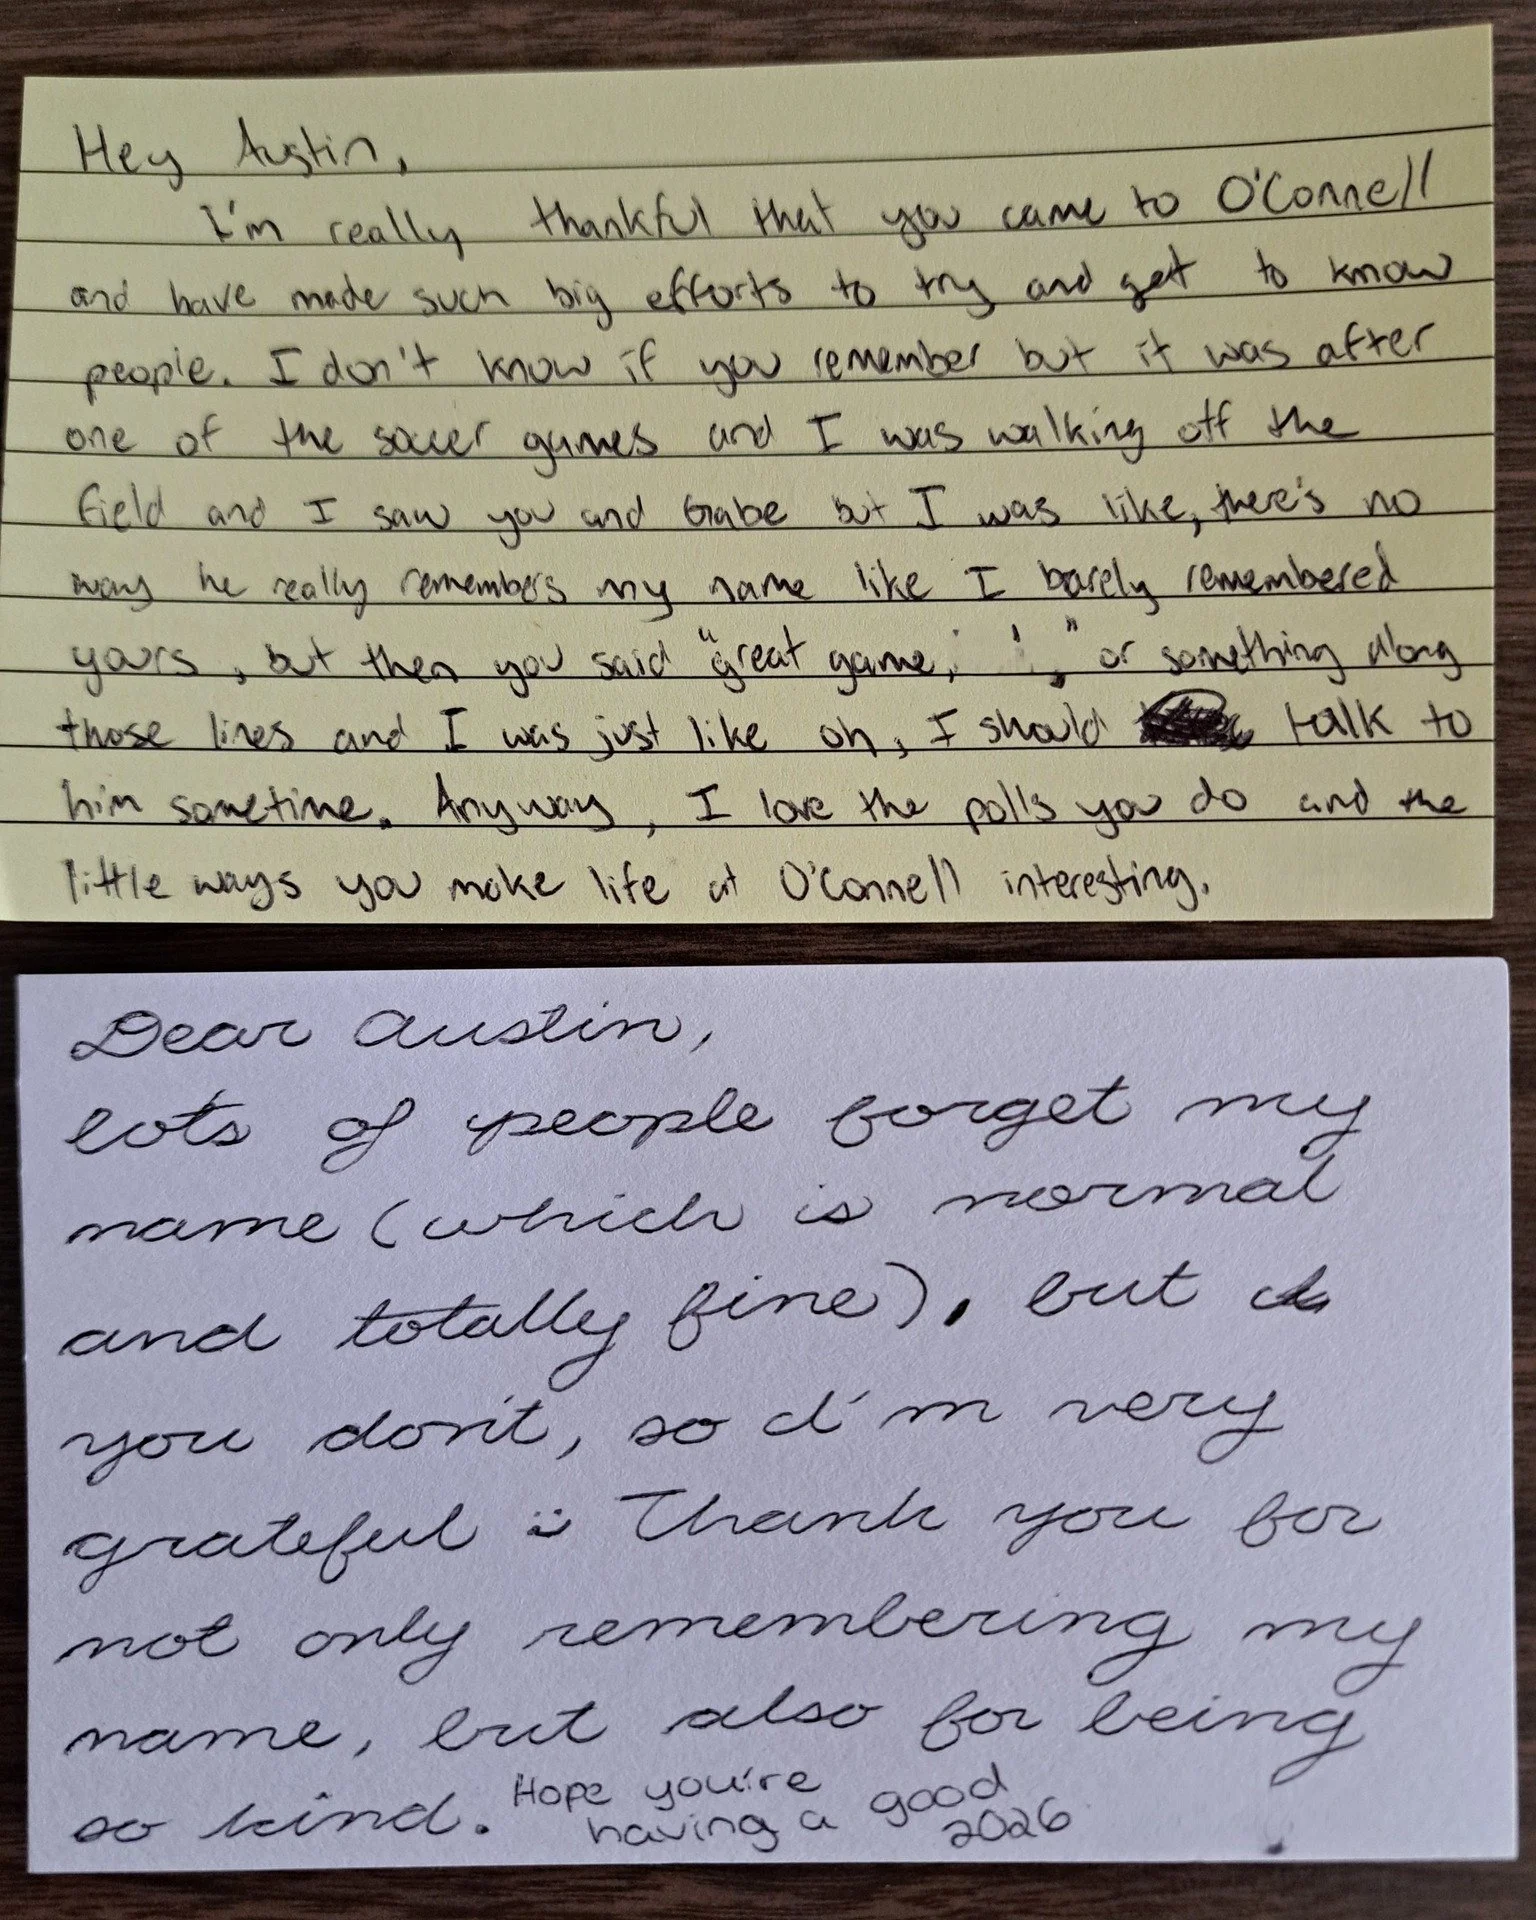 Hey Austin,
I'm really thankful that you came to O'Connell
and have made such big efforts to try and get to know
people. I don't know if you remember but it was after
one of the soccer games and I was walking off the
field and I saw you and Gabe but I was like, there's no
way he really remembers my name like I barely remembered
yours, but then you said "great game, " or something along
those lines and I was just like oh, I should talk to
him sometime. Anyway, I love the polls you do and the
little ways you make life at O'Connell interesting.
Dear Austin,
lots of people forget my
name (which is normal
and totally fine), but
you don't, so I'm very
grateful :) Thank you for
not only remembering my
name, but also for being
so kind. Hope you're
having a good
2026